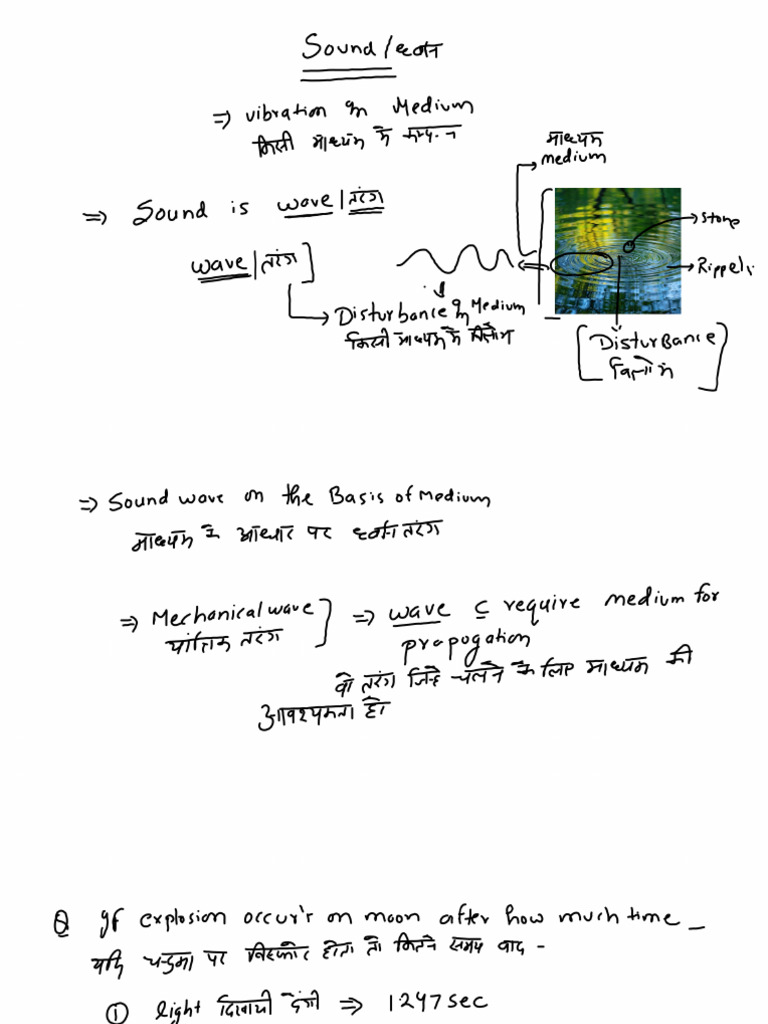 Sound/ध्वनि
⇒ vibration in Medium
किसी माध्यम में कम्पन
माध्यम
medium
⇒ Sound is wave|तरंग
stone
wave|तरंग]
Rippels
→ Disturbance in Medium
किसी माध्यम में विक्षोभ
[Disturbance
विक्षोभ]
⇒ Sound wave on the Basis of medium
माध्यम के आधार पर ध्वनि तरंग
⇒ Mechanical wave ] ⇒ wave c̲ require medium for
यांत्रिक तरंग
propogation
वो तरंग जिन्हे चलने के लिए माध्यम की
आवश्यकता हो
Q If explosion occur's on moon after how much time _
यदि चन्द्रमा पर विस्फोट होता तो कितने समय बाद -
① light दिखायी देगी ⇒ 1247sec